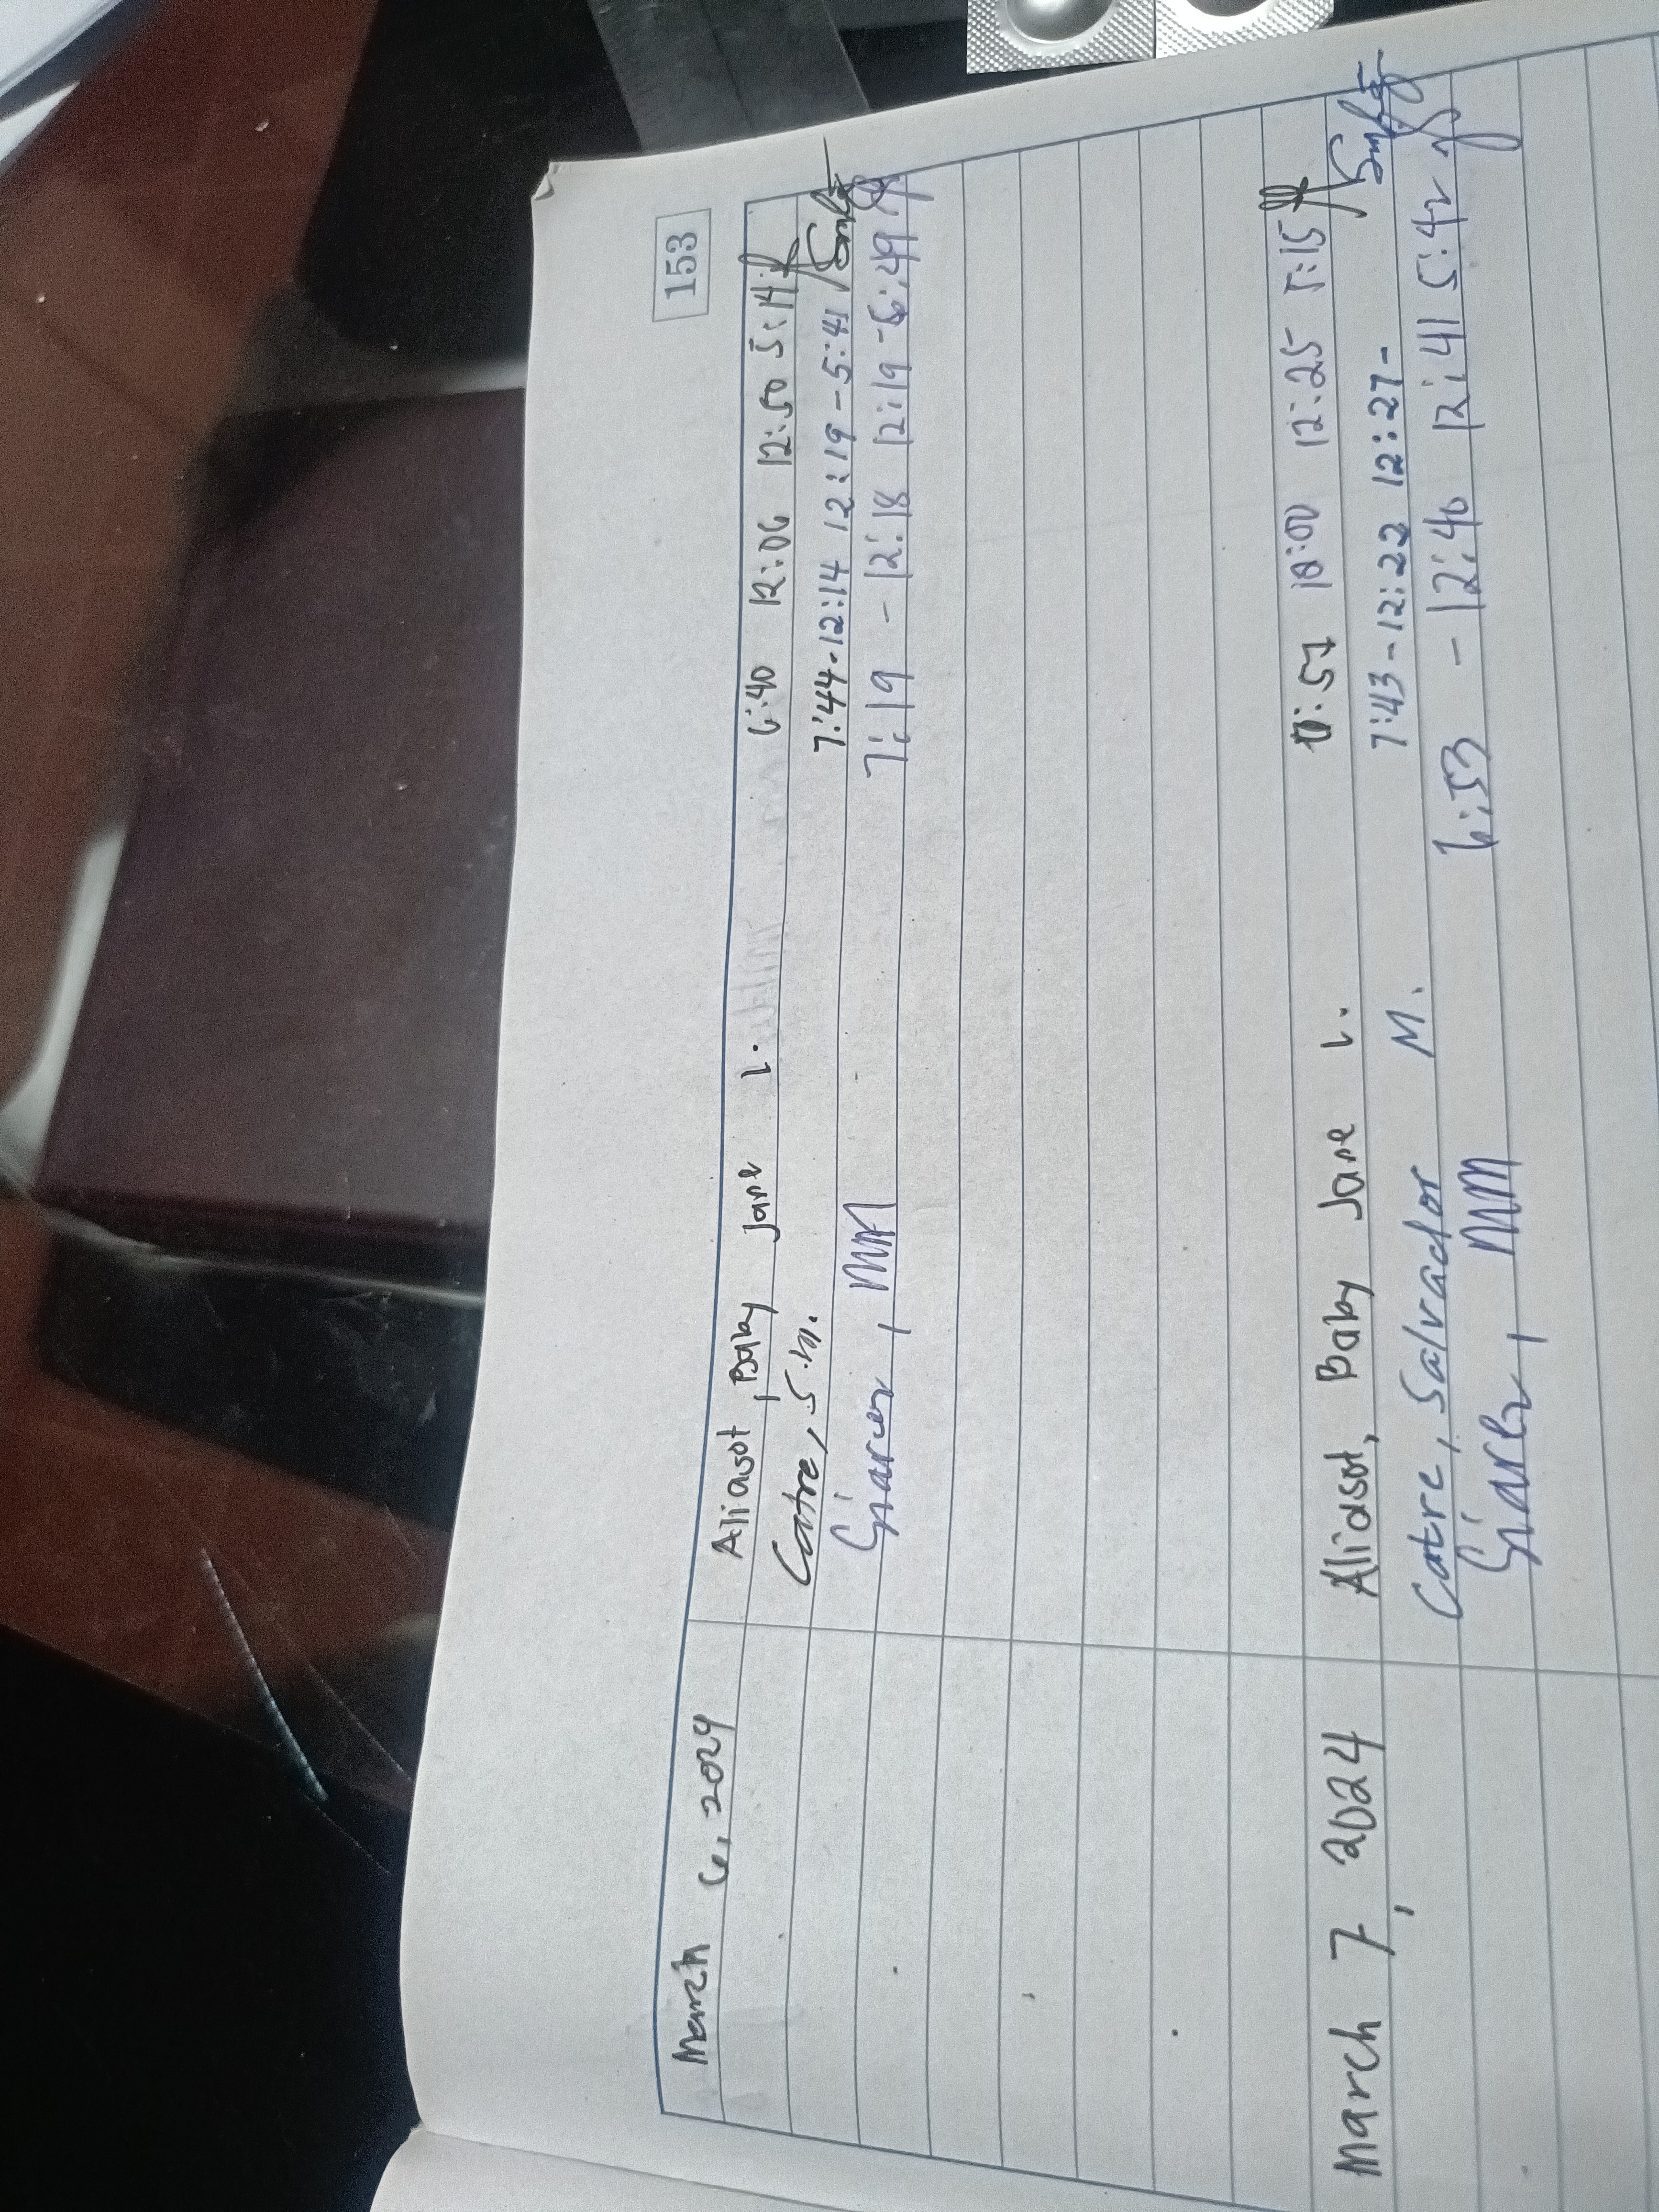 153
March 6, 2024 Aliasot, Baby Jane L. 6:40 12:06 12:50 5:14
Catre, S.M. 7:44-12:14 12:19-5:41
MM 7:19 - 12:18 12:19-5:49
March 7, 2024 Aliasot, Baby Jane L. :57 12:25 5:15
Catre, Salvador M. 7:43-12:22 12:27-
MM 6:53 - 12:40 12:41 5:42